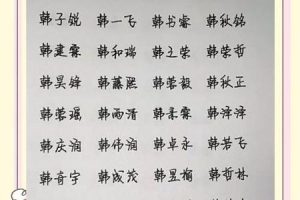 韩子锐 韩一飞 韩书睿 韩秋铭
韩建霖 韩和瑞 韩立荣 韩荣哲
韩昊锋 韩藤熙 韩蓉毅 韩秋正
韩蓉瑶 韩雨清 韩柔霖 韩泽泽
韩庆润 韩伟润 韩卓永 韩若飞
韩音宇 韩成茂 韩昱楠 韩哲林